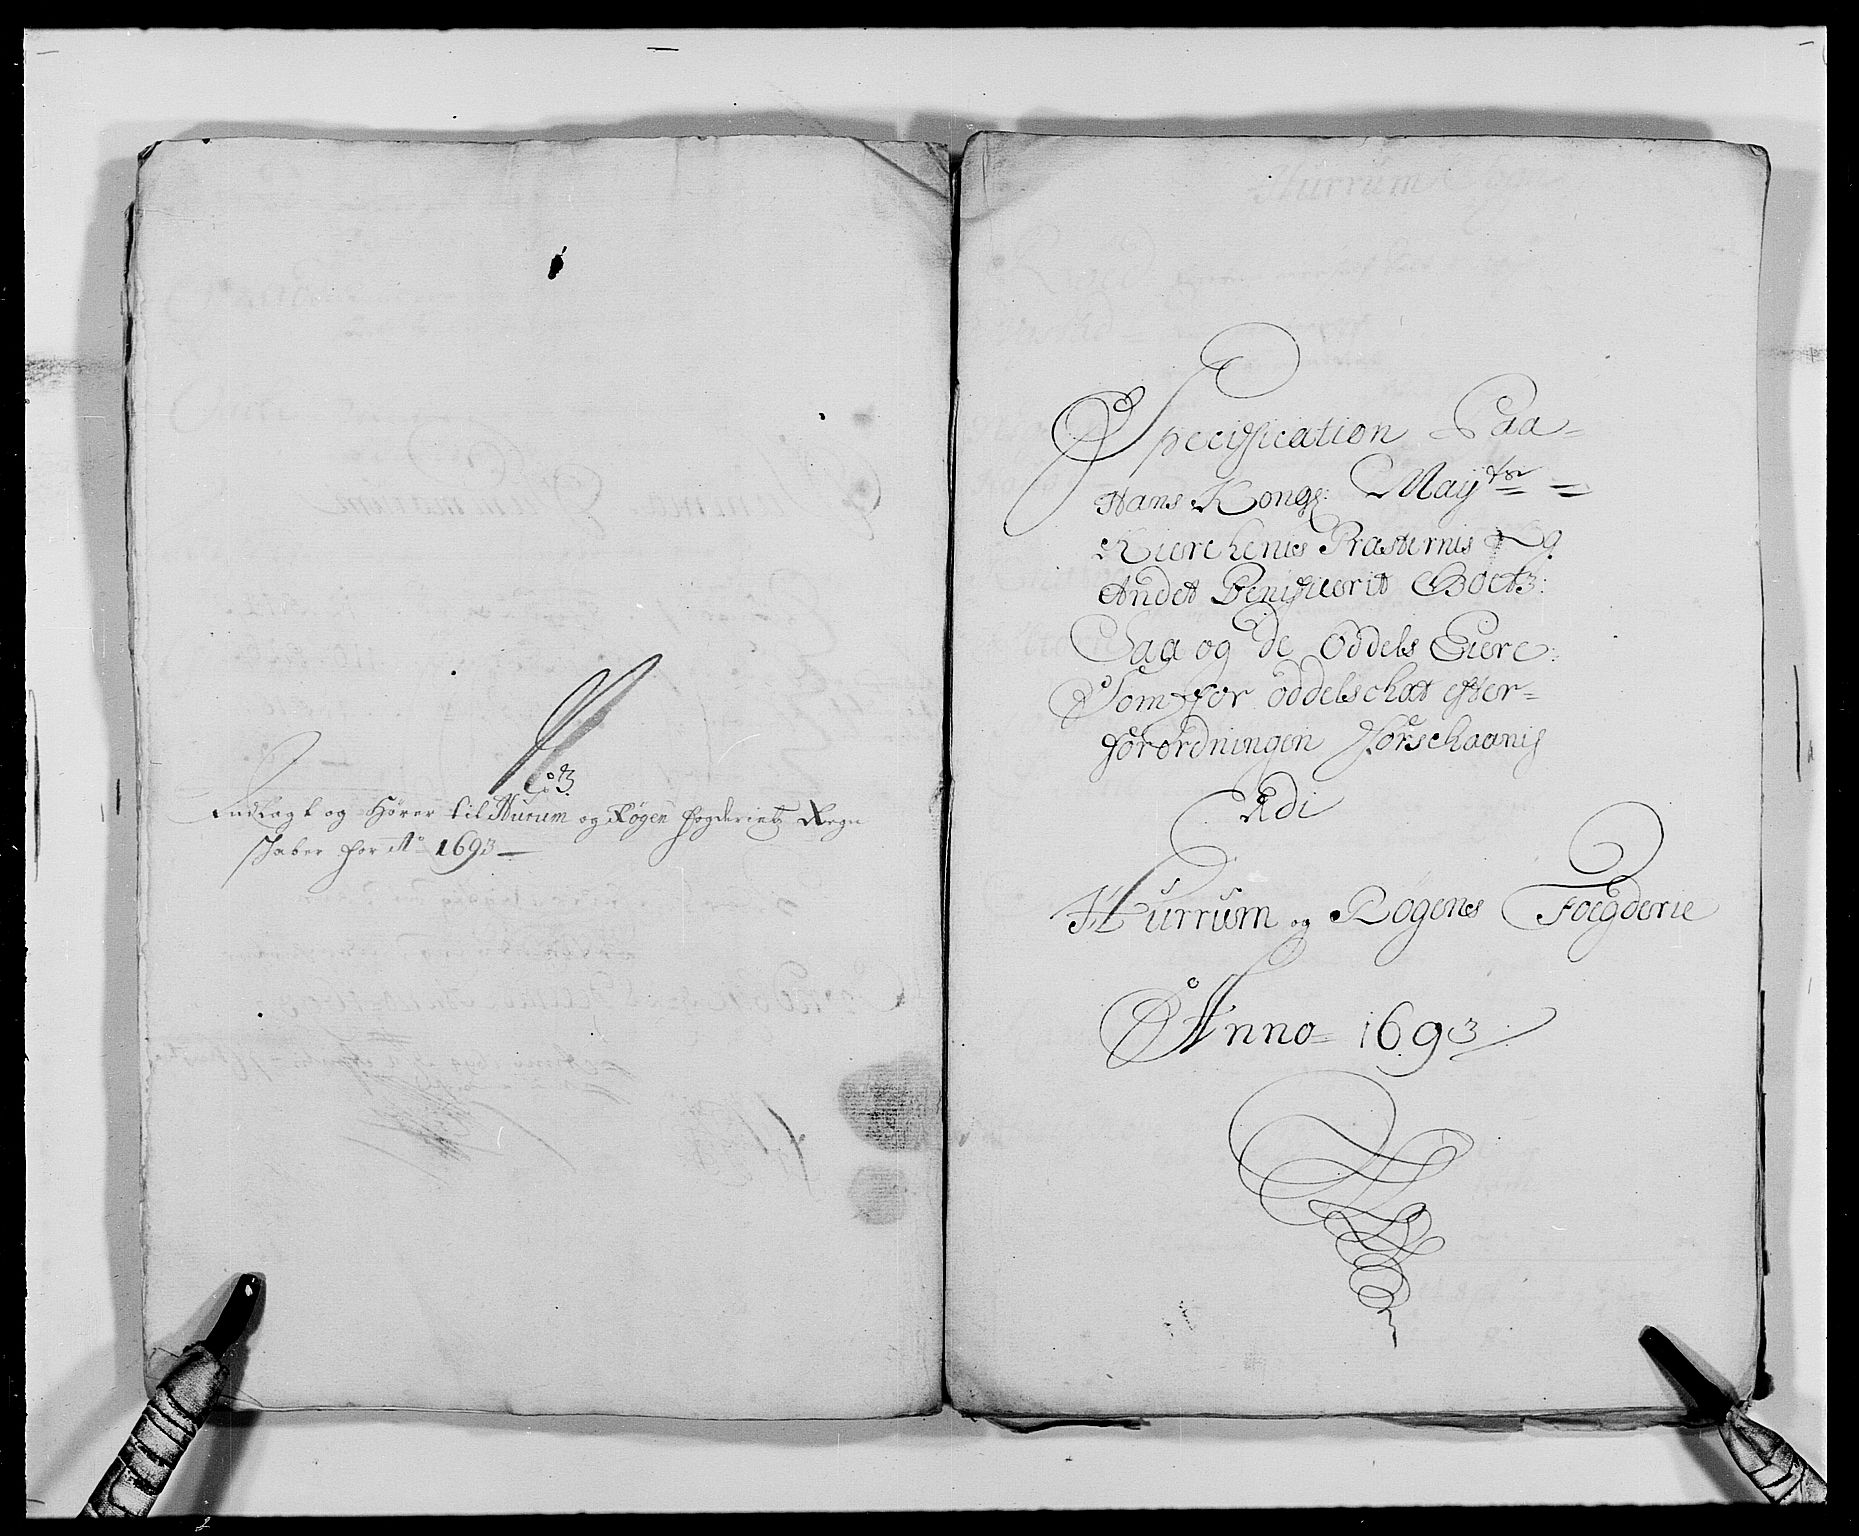 No 3.
Indlagt og Hører til Hurum og Røgen fogderietz Regn
skaber for Ao 1693
Specification Paa
Hans Kongl: Mayts
Kierchenis Præsternis Og
Andet Benificerit Godtz:
Saa og de Oddels Eiere
Som for oddelschat efter
forordningen forschaanis
Udi
Hurrum og Røgens Foegderie
Anno 1693